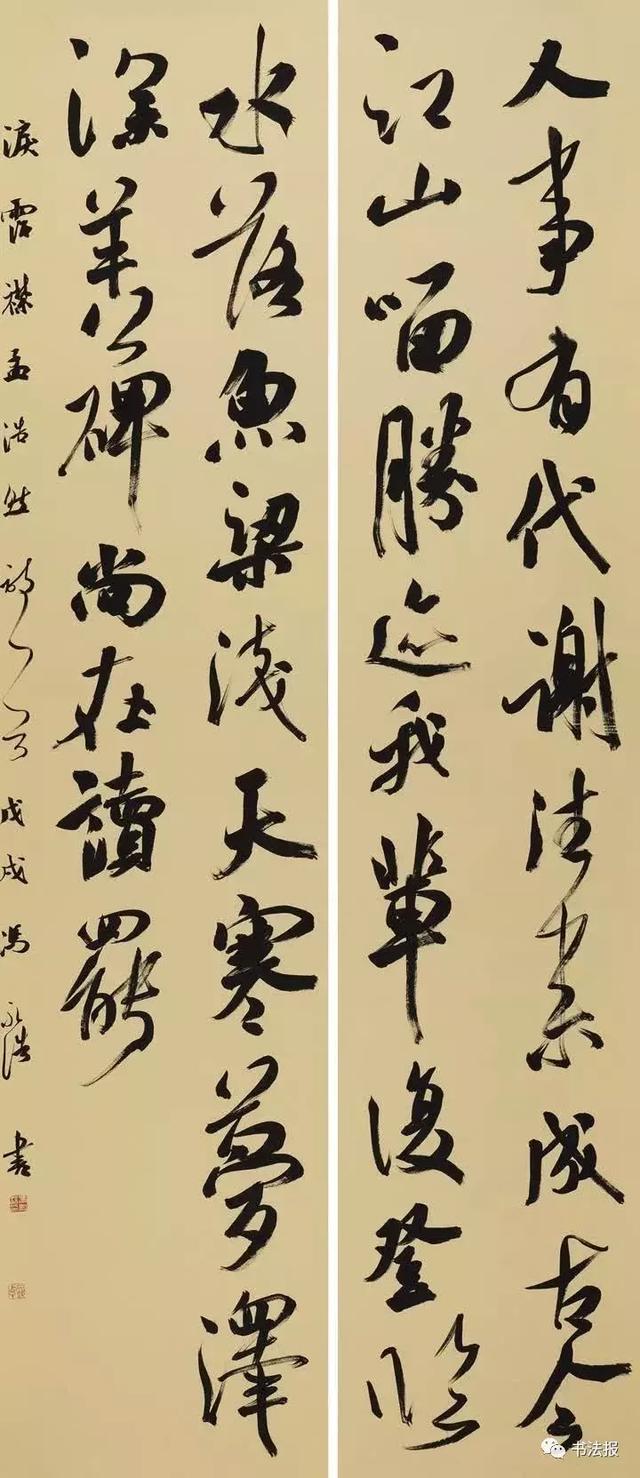 人事有代謝往来成古今
江山留勝迹我輩復登臨
水落魚梁淺天寒夢澤
深羊公碑尚在讀罷
淚霑襟孟浩然詩一首戊戌馮永浩書
书法报